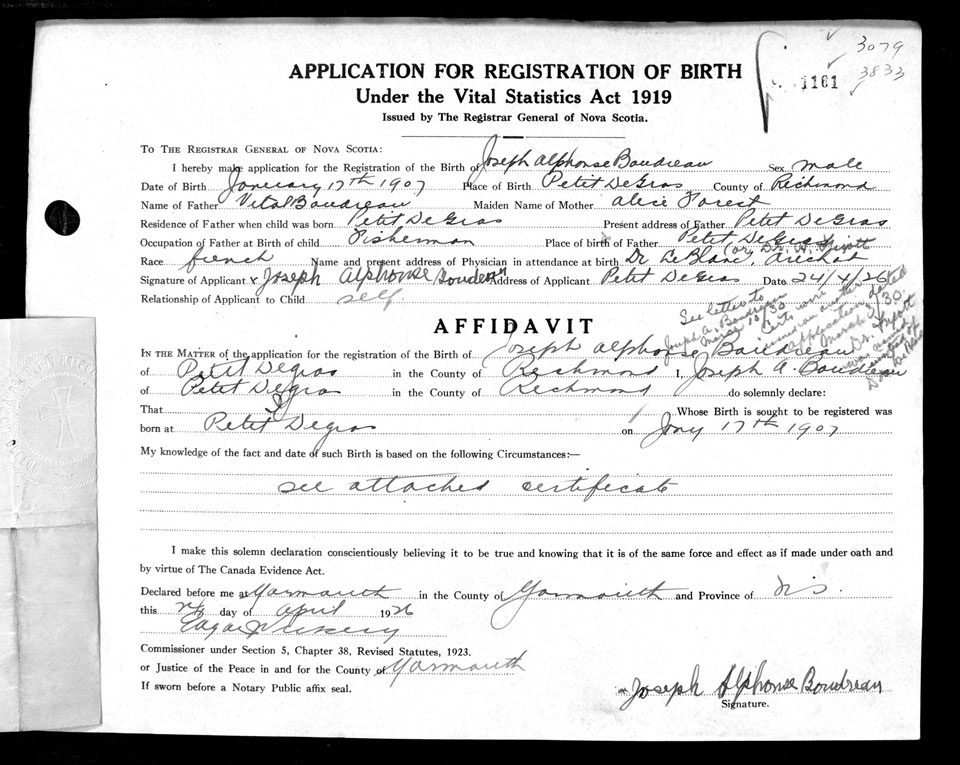 3079
3833
1161
APPLICATION FOR REGISTRATION OF BIRTH
Under the Vital Statistics Act 1919
Issued by The Registrar General of Nova Scotia.
TO THE REGISTRAR GENERAL OF NOVA SCOTIA:
I hereby make application for the Registration of the Birth of Joseph Alphonse Boudreau Sex male
Date of Birth January 17th 1907 Place of Birth Petit DeGras County of Richmond
Name of Father Vital Boudreau Maiden Name of Mother Alice Forest
Residence of Father when child was born Petit DeGras Present address of Father Petit DeGras
Occupation of Father at Birth of child Fisherman Place of birth of Father Petit DeGras
Race french Name and present address of Physician in attendance at birth Dr LeBlanc, Arichat
Signature of Applicant x Joseph Alphonse Address of Applicant Petit DeGras Date 24/4/26
Relationship of Applicant to Child self.
See letter to
Joseph A. Boudreau
AFFIDAVIT
IN THE MATTER of the application for the Registration of the Birth of Joseph Alphonse Boudreau
of Petit Degras in the County of Richmond I, Joseph A. Boudreau
of Petit Degras in the County of Richmond do solemnly declare:
That I Whose Birth is sought to be registered was
born at Petit Degras on Jany 17th 1907
My knowledge of the fact and date of such Birth is based on the following Circumstances:—
see attached certificate
I make this solemn declaration conscientiously believing it to be true and knowing that it is of the same force and effect as if made under oath and
by virtue of The Canada Evidence Act.
Declared before me at Yarmouth in the County of Yarmouth and Province of N.S.
this 24 day of April 1926
Commissioner under Section 5, Chapter 38, Revised Statutes, 1923.
or Justice of the Peace in and for the County of Yarmouth
If sworn before a Notary Public affix seal.
x Joseph Alphonse Boudreau
Signature.